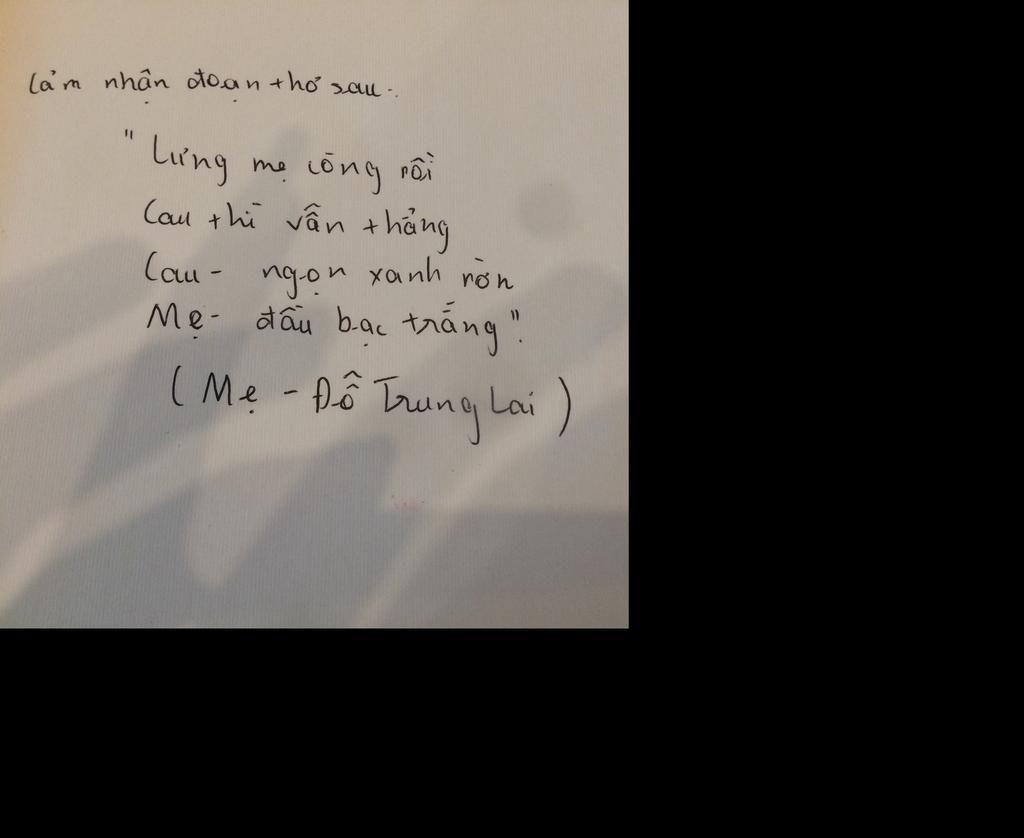 Cảm nhận đoạn thơ sau.
"Lưng mẹ còng rồi
Cau thì vẫn thẳng
Cau - ngọn xanh rờn
Mẹ - đầu bạc trắng".
(Mẹ - Đỗ Trung Lai)